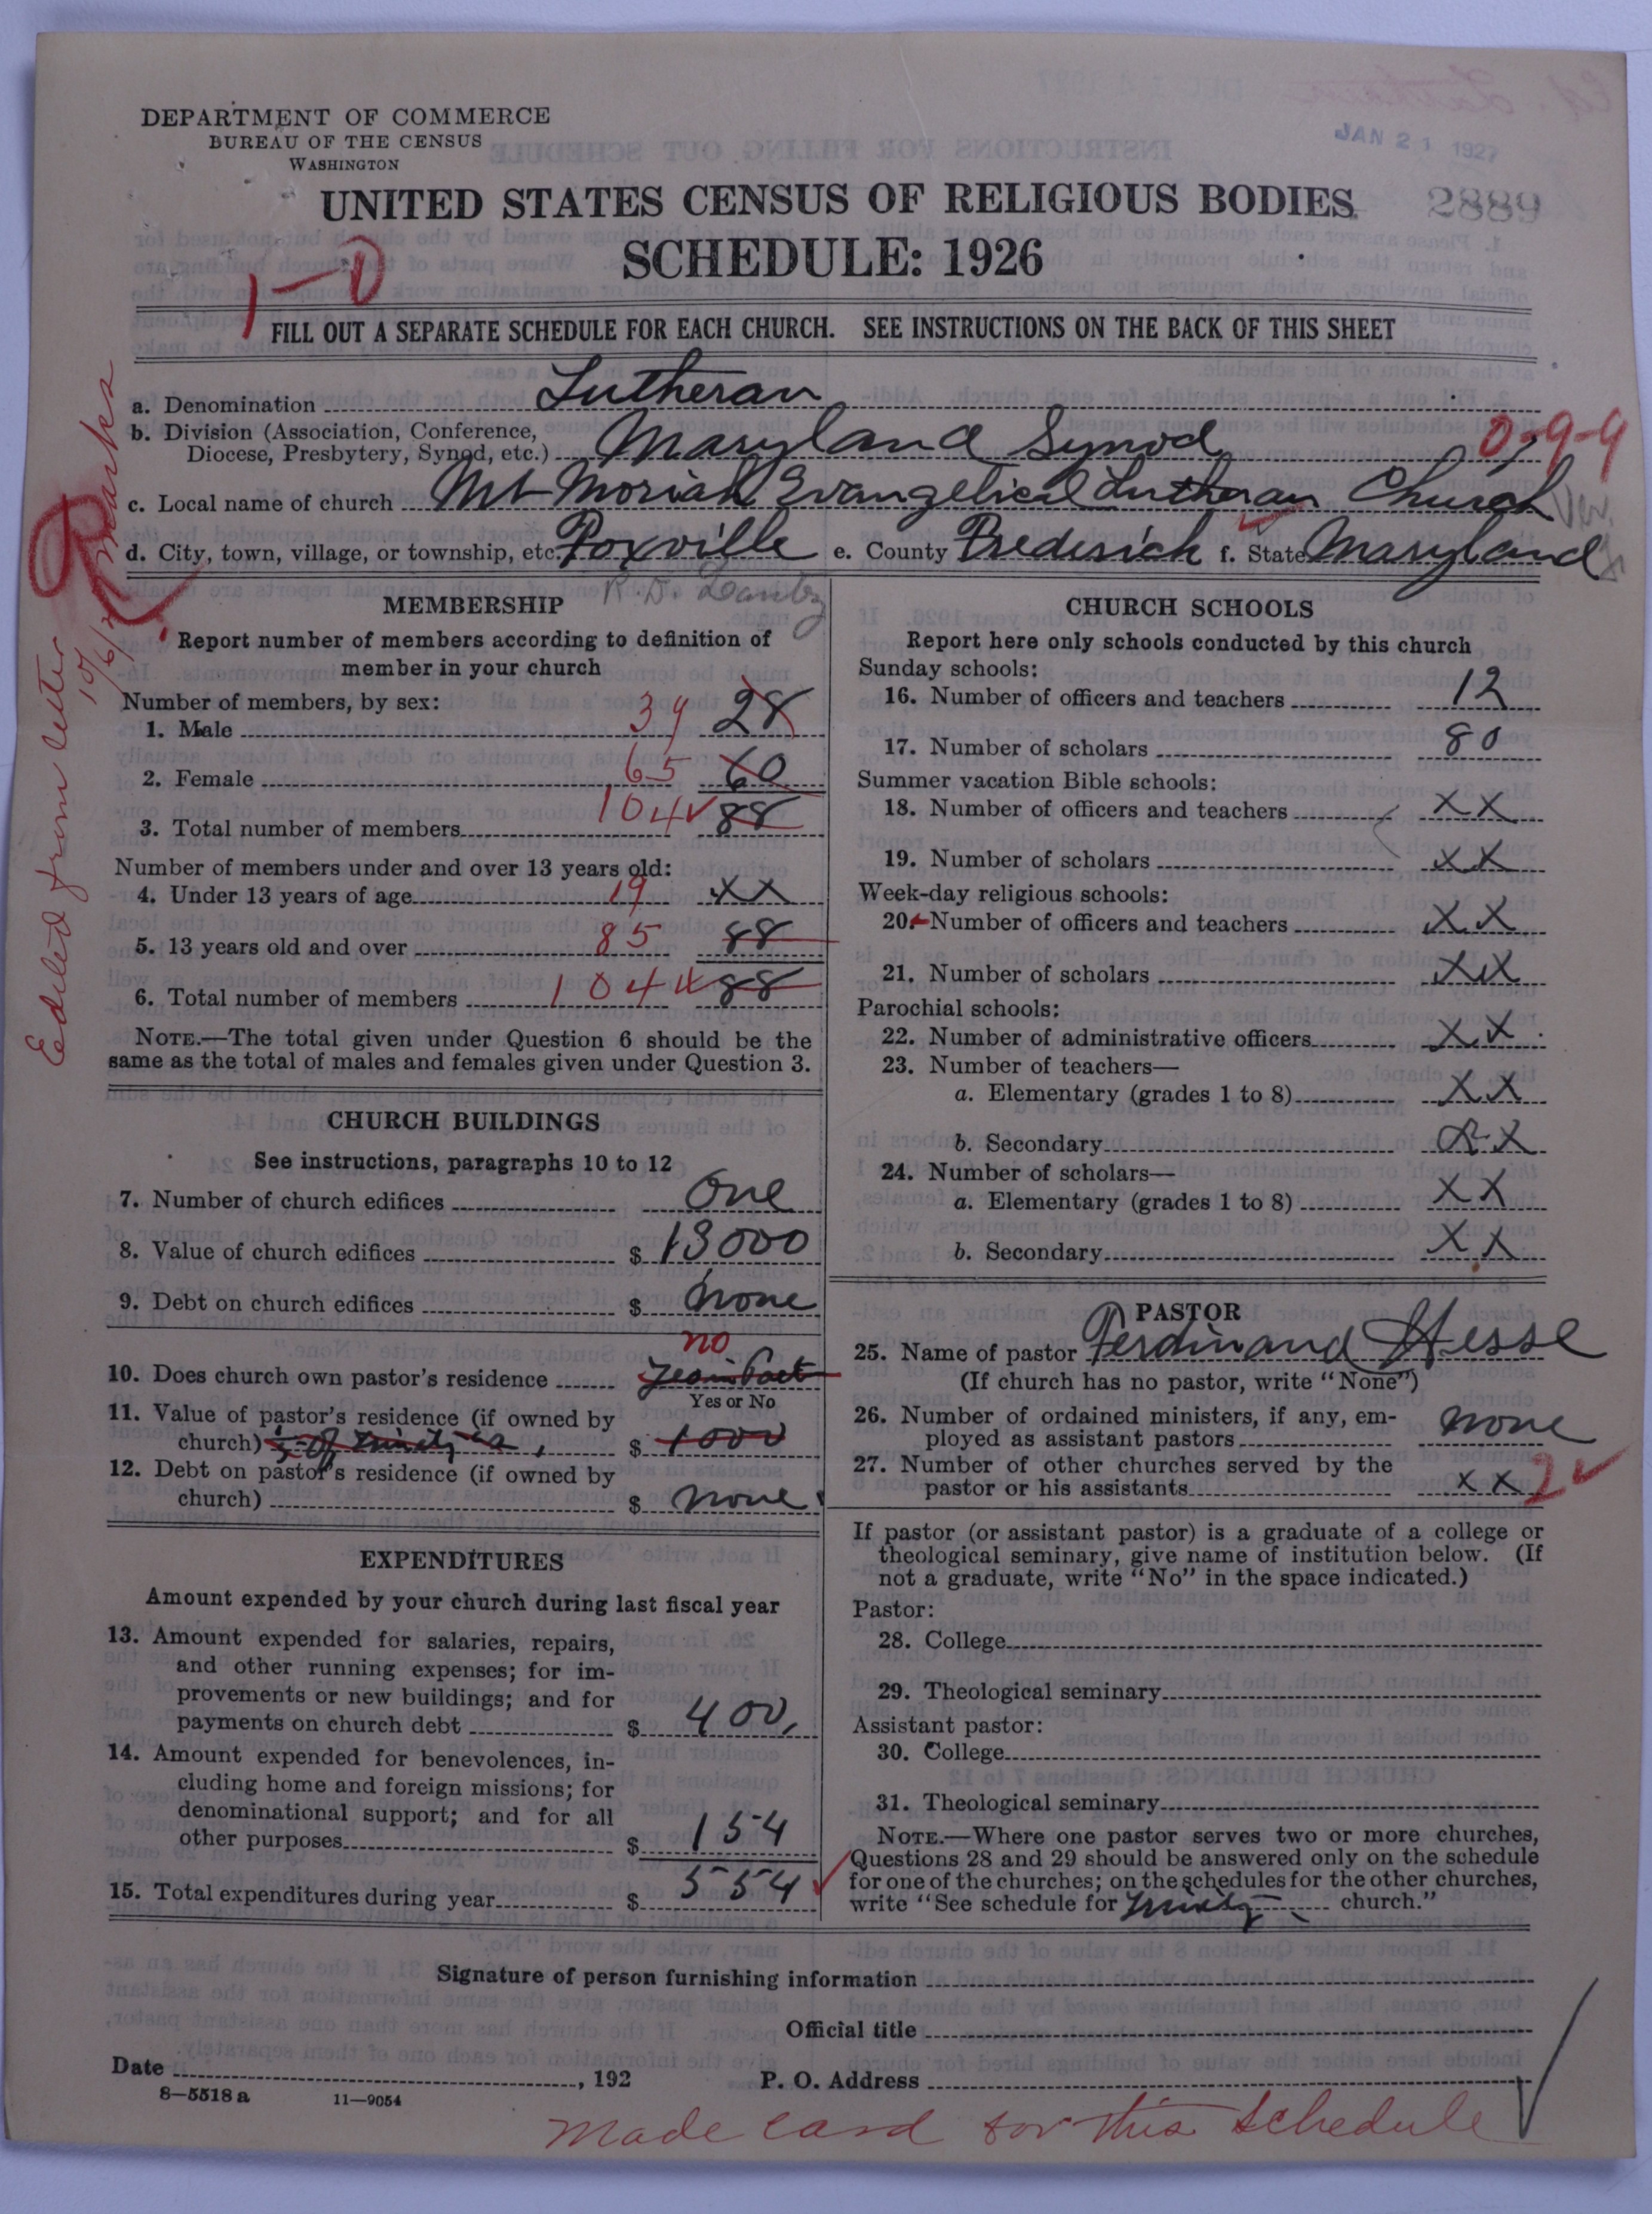 DEPARTMENT OF COMMERCE
BUREAU OF THE CENSUS
WASHINGTON
JAN 21 1927
UNITED STATES CENSUS OF RELIGIOUS BODIES
2889
SCHEDULE: 1926
1-0
FILL OUT A SEPARATE SCHEDULE FOR EACH CHURCH. SEE INSTRUCTIONS ON THE BACK OF THIS SHEET
a. Denomination Lutheran
b. Division (Association, Conference, Diocese, Presbytery, Synod, etc.) Maryland Synod
0-9-9
c. Local name of church Mt Moriah Evangelical Lutheran Church
d. City, town, village, or township, etc. Foxville e. County Frederick f. State Maryland
Edited from letter
MEMBERSHIP
R.D.
Report number of members according to definition of
member in your church
Number of members, by sex:
1. Male 39 28
2. Female 65 60
3. Total number of members 104 88
Number of members under and over 13 years old:
4. Under 13 years of age 19 XX
5. 13 years old and over 85 88
6. Total number of members 104 88
NOTE.—The total given under Question 6 should be the
same as the total of males and females given under Question 3.
CHURCH BUILDINGS
See instructions, paragraphs 10 to 12
7. Number of church edifices One
8. Value of church edifices $ 13000
9. Debt on church edifices $ None
no
10. Does church own pastor's residence Yes in Part
Yes or No
11. Value of pastor's residence (if owned by
church) $ 1000
12. Debt on pastor's residence (if owned by
church) $ None
EXPENDITURES
Amount expended by your church during last fiscal year
13. Amount expended for salaries, repairs,
and other running expenses; for im-
provements or new buildings; and for
payments on church debt $ 400
14. Amount expended for benevolences, in-
cluding home and foreign missions; for
denominational support; and for all
other purposes $ 154
15. Total expenditures during year $ 554
CHURCH SCHOOLS
Report here only schools conducted by this church
Sunday schools:
16. Number of officers and teachers 12
17. Number of scholars 80
Summer vacation Bible schools:
18. Number of officers and teachers XX
19. Number of scholars XX
Week-day religious schools:
20. Number of officers and teachers XX
21. Number of scholars XX
Parochial schools:
22. Number of administrative officers XX
23. Number of teachers—
a. Elementary (grades 1 to 8) XX
b. Secondary XX
24. Number of scholars—
a. Elementary (grades 1 to 8) XX
b. Secondary XX
PASTOR
25. Name of pastor Ferdinand Hesse
(If church has no pastor, write "None")
26. Number of ordained ministers, if any, em-
ployed as assistant pastors None
27. Number of other churches served by the
pastor or his assistants XX 2
If pastor (or assistant pastor) is a graduate of a college or
theological seminary, give name of institution below. (If
not a graduate, write "No" in the space indicated.)
Pastor:
28. College
29. Theological seminary
Assistant pastor:
30. College
31. Theological seminary
NOTE.—Where one pastor serves two or more churches,
Questions 28 and 29 should be answered only on the schedule
for one of the churches; on the schedules for the other churches,
write "See schedule for Trinity church."
Signature of person furnishing information
Official title
Date , 192
P. O. Address
8—5518 a 11—9054
Made card for this schedule